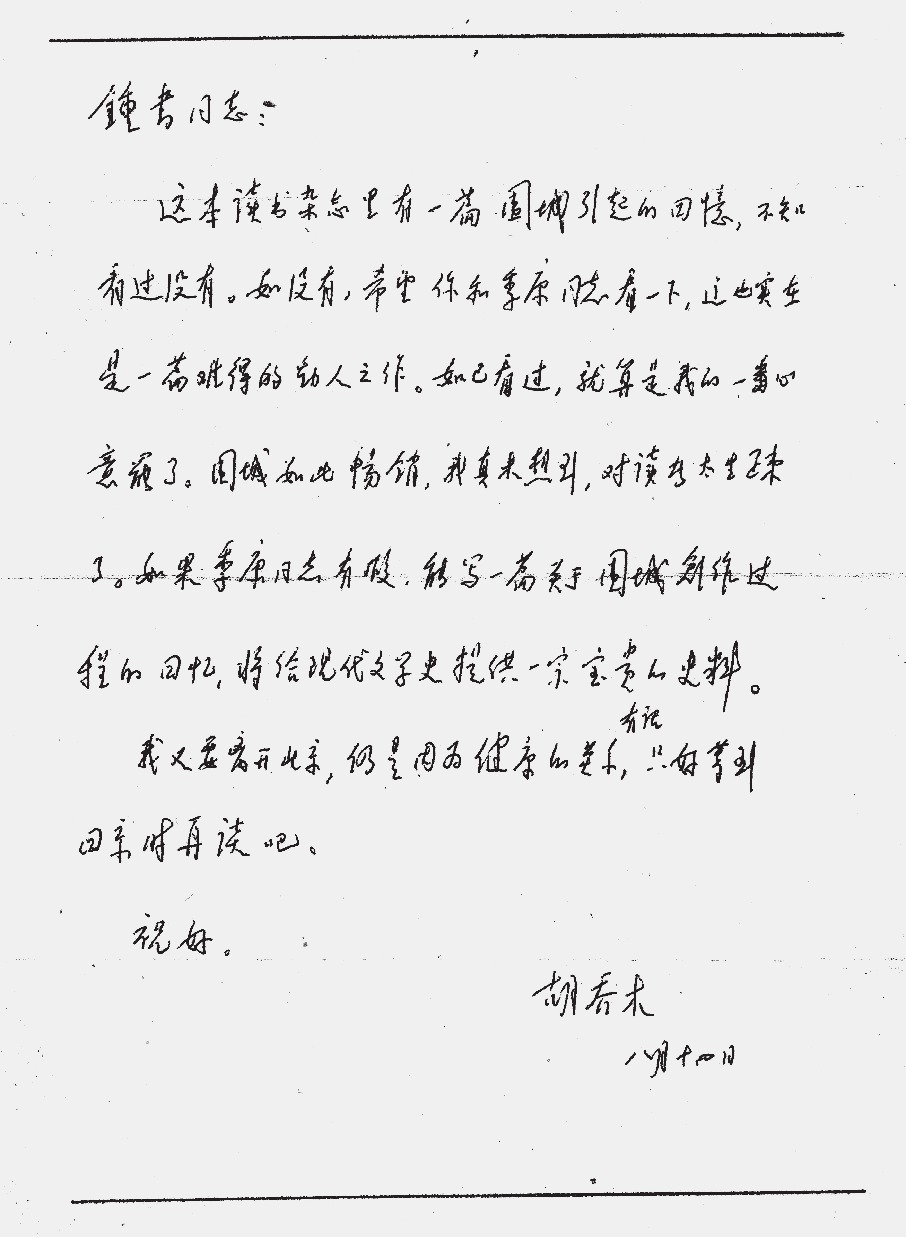 鍾书同志：
这本读书杂志里有一篇围城引起的回憶，不知
看过没有。如没有，希望你和季康同志看一下，这也实在
是一篇难得的动人之作。如已看过，就算是我的一番心
意罢了。围城如此畅销，我真未想到，对读者太生疏
了。如果季康同志有暇，能写一篇关于围城创作过
程的回忆，将给现代文学史提供一宗宝贵的史料。
我又要离开北京，仍是因为健康的关系，有话只好等到
回京时再谈吧。
祝好。
胡乔木
八月十四日